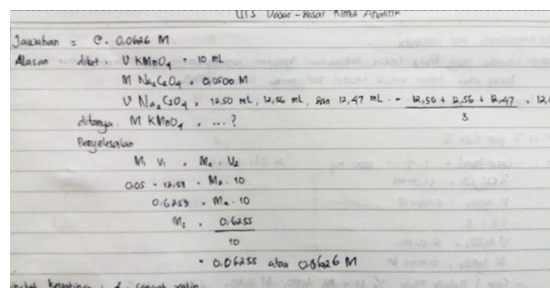 UTS Dasar-Dasar Kimia Analitik
Jawaban = C. 0.0626 M
Alasan diket: V KMnO4 = 10 mL
M Na2C2O4 = 0.0500 M
V Na2C2O4 = 12.50 mL, 12,56 mL, dan 12,47 mL = 12,50 + 12,56 + 12,47 / 3 = 12,
ditanya: M KMnO4 = ...?
Penyelesaian
M1 V1 = M2 V2
0.05 . 12.51 = M2 . 10
0.6255 = M2 . 10
M2 = 0,6255 / 10
= 0.06255 atau 0.0626 M